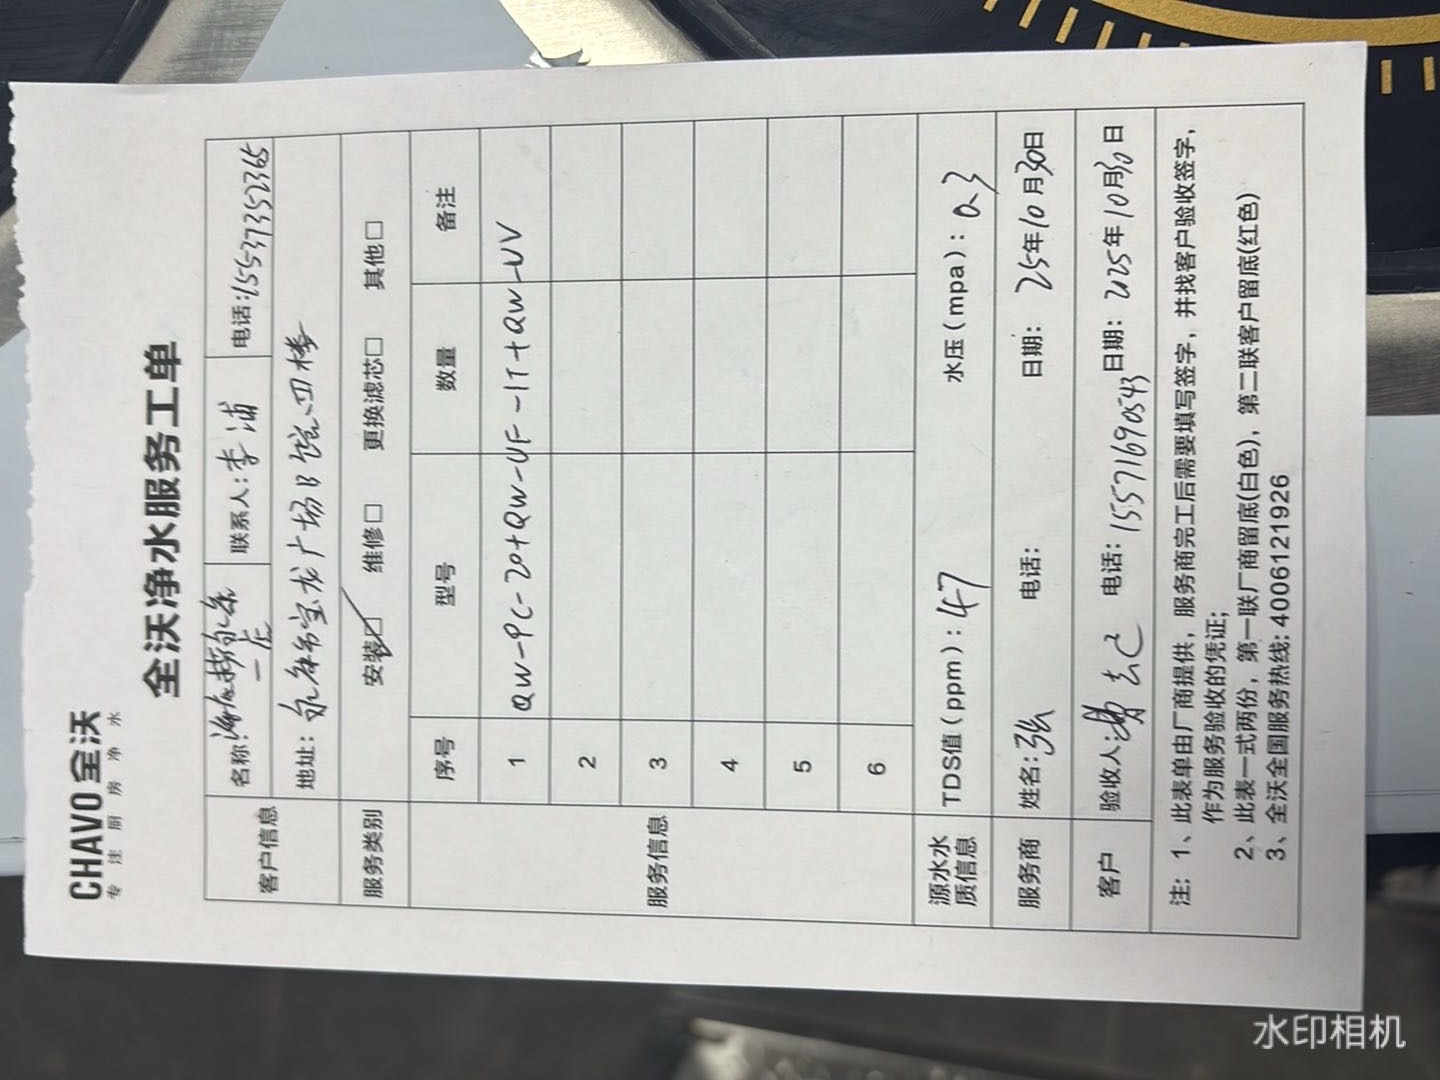 CHAVO 全沃
专注厨房净水
全沃净水服务工单
客户信息
名称: 海底捞
联系人: 李浦
电话: 15537352365
地址: 永康市宝龙广场B馆、四楼
服务类别 安装☑ 维修□ 更换滤芯□ 其他□
服务信息
序号 型号 数量 备注
1 QW-PC-20+QW-UF-1T+QW-UV
2
3
4
5
6
源水水质信息 TDS值(ppm): 47 水压(mpa): 0.3
服务商 姓名: 张 电话: 日期: 25年10月30日
客户 验收人: 电话: 15571690543 日期: 2025年10月30日
注: 1、此表单由厂商提供，服务商完工后需要填写签字，并找客户验收签字，
作为服务验收的凭证;
2、此表一式两份，第一联厂商留底(白色)，第二联客户留底(红色)
3、全沃全国服务热线: 4006121926
水印相机